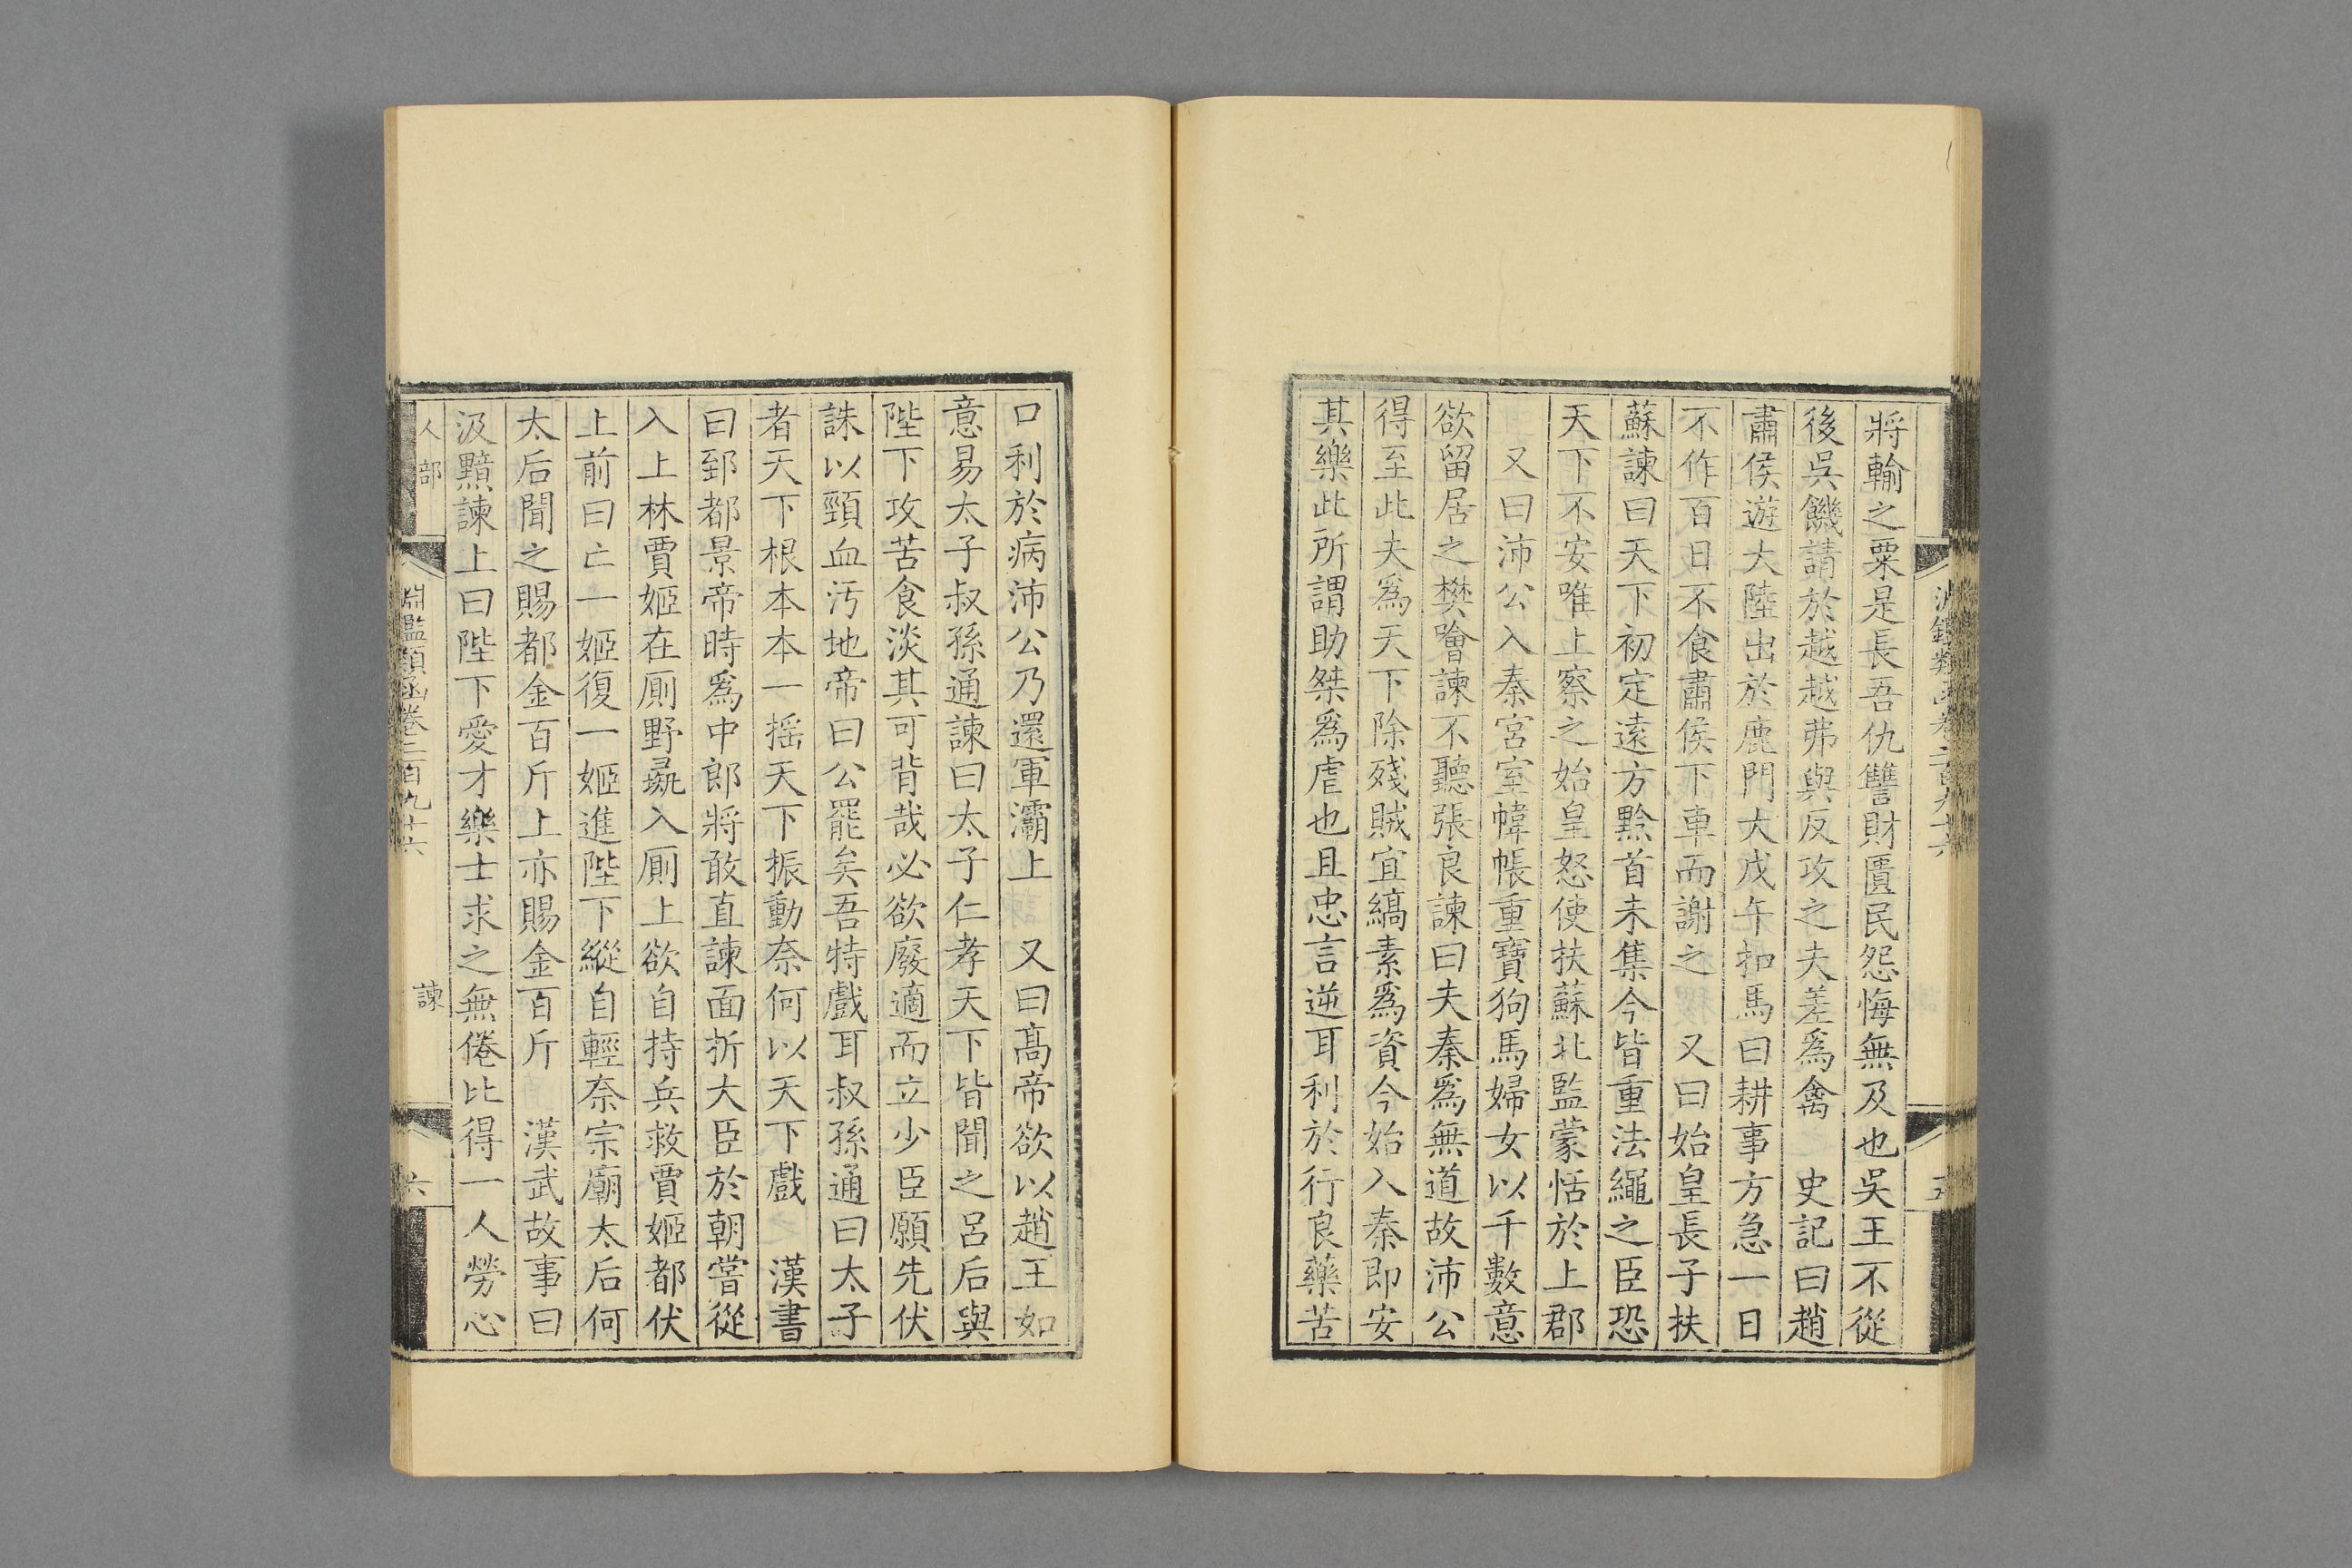 將輸之粟是長吾仇讐財匱民怨悔無及也吳王不從
後吳饑請於越越弗與反攻之夫差爲禽　史記曰趙
肅侯遊大陸出於鹿門大戊午扣馬曰耕事方急一日
不作百日不食肅侯下車而謝之　又曰始皇長子扶
蘇諫曰天下初定遠方黔首未集今皆重法繩之臣恐
天下不安唯上察之始皇怒使扶蘇北監蒙恬於上郡
又曰沛公入秦宮室幃帳重寶狗馬婦女以千數意
欲留居之樊噲諫不聽張良諫曰夫秦爲無道故沛公
得至此夫爲天下除殘賊宜縞素爲資今始入秦即安
其樂此所謂助桀爲虐也且忠言逆耳利於行良藥苦
口利於病沛公乃還軍灞上　又曰髙帝欲以趙王如
意易太子叔孫通諫曰太子仁孝天下皆聞之呂后與
陛下攻苦食淡其可背哉必欲廢適而立少臣願先伏
誅以頸血汚地帝曰公罷矣吾特戲耳叔孫通曰太子
者天下根本本一摇天下振動奈何以天下戲　漢書
曰郅都景帝時爲中郎將敢直諫面折大臣於朝嘗從
入上林賈姬在厠野彘入厠上欲自持兵救賈姬都伏
上前曰亡一姬復一姬進陛下縱自輕奈宗廟太后何
太后聞之賜都金百斤上亦賜金百斤　漢武故事曰
汲黯諫上曰陛下愛才樂士求之無倦比得一人勞心
人部
淵鑑類函卷二百九十六
諫
六